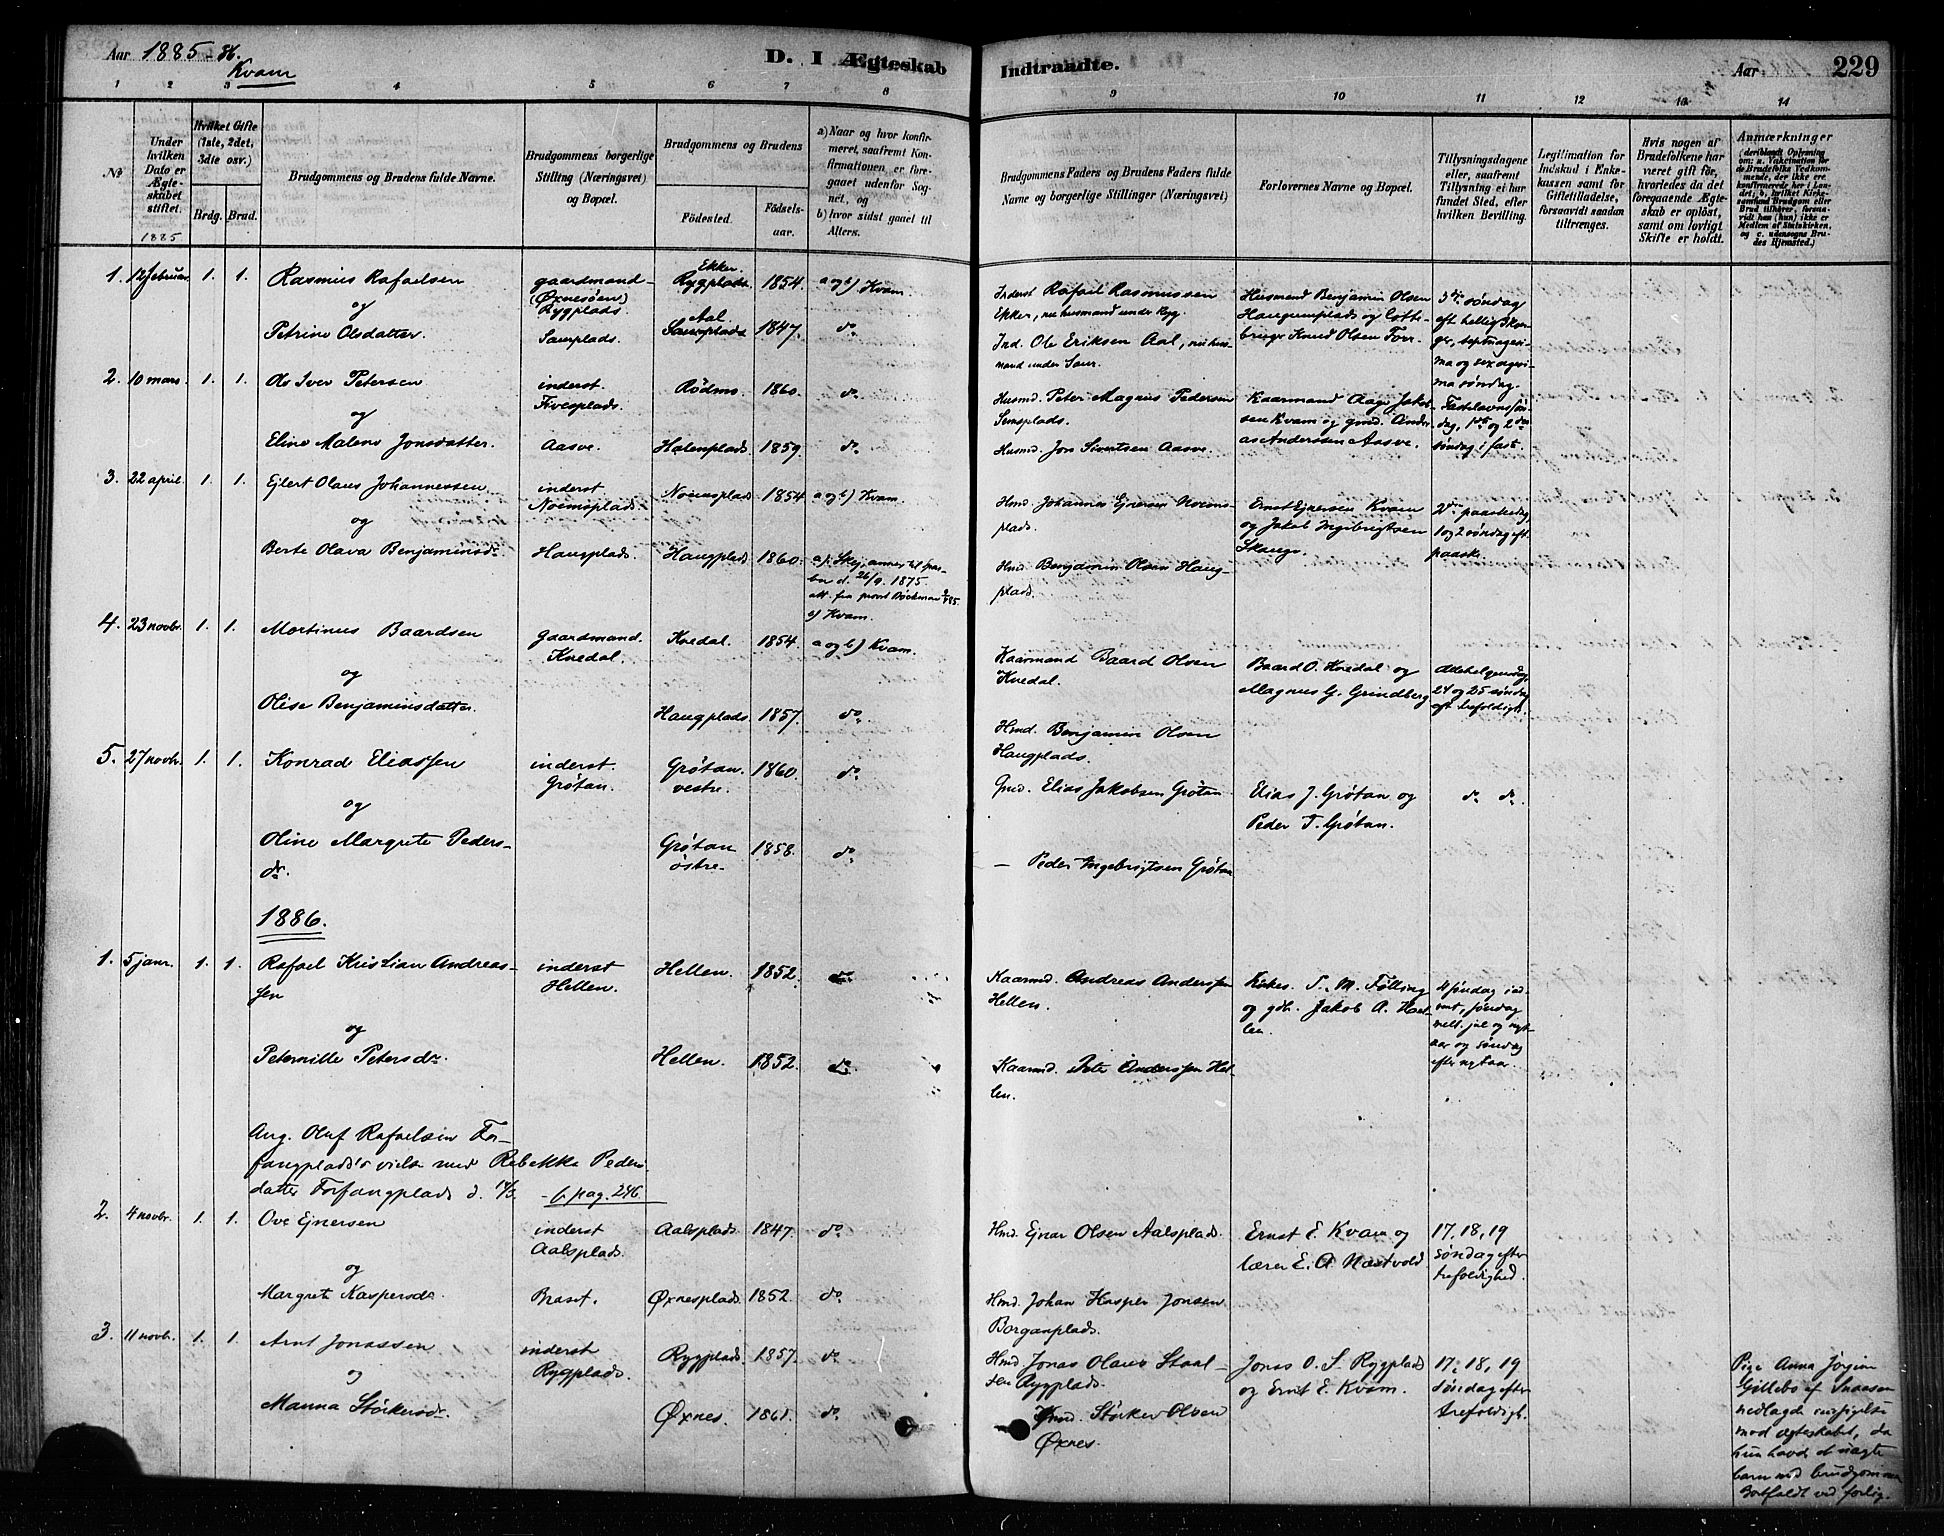 Aar 1885-86.
Kvam
D. I Ægteskab
Indtraadte.
Aar
229
1 2 3 4 5 6 7 8 9 10 11 12 13 14
No
Under hvilken Dato er Ægteskabet stiftet.
1885
Hvilket Gifte (1ste, 2det, 3dte osv.)
Brdg. Brud.
Brudgommens og Brudens fulde Navne.
Brudgommens borgerlige Stilling (Næringsvei) og Bopæl.
Brudgommens og Brudens
Fødested.
Fødselsaar.
a) Naar og hvor konfirmeret, saafremt Konfirmationen er foregaaet udenfor Sognet, og
b) hvor sidst gaaet til Alters.
Brudgommens Faders og Brudens Faders fulde Navne og borgerlige Stillinger (Næringsvei)
Forlovernes Navne og Bopæl.
Tillysningsdagene eller, saafremt Tillysning ei har fundet Sted, efter hvilken Bevilling.
Legitimation for Indskud i Enkekassen samt for Giftetilladelse, forsaavidt saadan tiltrænges.
Hvis nogen af Brudefolkene har været gift før, hvorledes da det foregaaende Ægteskab er opløst, samt om lovligt Skifte er holdt.
Anmærkninger
(deriblandt Oplysning om: a. Vakcination for de Brudefolks Vedkommende, der ikke ere konfirmerede her i Landet; b. hvilket Kirkesamfund Brudgom eller Brud tilhører, forsaavidt han (hun) ikke er Medlem af Statskirken, og c. udensogns Brudes Hjemsted.)
1. 12 februar. 1. 1. Rasmus Rafaelsen
gaardmand (Øxnesøen) Rygplads
Ekker. Rygplads. 1854. a og b) Kvam.
Inderst Rafael Rasmussen Ekker, nu husmand under Ryg.
Husmand Benjamin Olsen Haugumplads og
Knud Olsen
3die søndag eft hellig 3 konger, septuagesima og sexagesima søndag.
og
Petrine Olsdatter. Samplads. Aal 1847. do.
Ind. Ole Eriksen Aal, nu husmand under
2. 10 mars. 1. 1. Ole Iver Petersen
inderst Fivesplads. Rødmo. 1860. do.
Husmd. Peter Magnus Pedersen Semsplads.
Kaarmand Aage Jakobsen Kvam og gmd. Anders Anderssen Aasve.
Fastelavnssøndag, 1ste og 2den søndag i fast.
og
Eline Malene Jonsdatter. Aasve. Halenplads. 1859. do.
Husmd. Jon Sivertsen Aasve.
3. 22 april. 1. 1. Ejlert Olaus Johannessen
inderst Noemsplads. Noemsplads. 1854. a og b) Kvam.
Hmd. Johannes Ejnersen Noemsplads.
Ernst Ejnersen Kvam og Jakob Ingebrigtsen Skauge.
2den paaskedag, 1 og 2 søndag eft. paaske.
og
Berte Olava Benjaminsdr. Haugplads. Haugplads. 1860.
a) Skej, d. 26/9. 1875
att. fra provst Bøckman
b) Kvam.
Hmd. Benjamin Olsen Haugplads.
4. 23 novbr. 1. 1. Mortinus Baardsen
Gaardmand. Knedal. Knedal. 1854. a og b) Kvam.
Kaarmand Baard Olsen Knedal.
Baard O. Knedal og Magnus G. Grindberg
Allehelgensdag, 24 og 25 søndag eft trefoldigh.
og
Olise Benjaminsdatter. Haugplads. 1857. do.
Hmd. Benjamin Olsen Haugplads.
5. 27 novbr. 1. 1. Konrad Eliassen
inderst. Grøtan. Grøtan. vestre. 1860. do.
Gmd. Elias Jakobsen Grøtan
Elias J. Grøtan og Peder T. Grøtan.
do do.
og
Oline Margrete Pedersdr. Grøtan østre. 1858. do.
— Peder Ingebrigtsen Grøtan
1886.
1. 5 janr. 1. 1. Rafael Kristian Andreassen
inderst Hellen. Hellen. 1852. do.
Kaarmd. Andreas Anderssen Hellen.
Kirkes. T. M. Følling og gbr. Jakob A. Hellen.
4 søndag i advent, søndag mell. jul og nytaar og søndag efter nytaar.
og
Peternille Petersdr. Hellen. 1852. do.
Kaarmd. Peter Anderssen Hellen.
Ang. Oluf Rafaelsen Forfangplads's vielse med Rebekka Pedersdatter Forfangplads d. — pag. 246
2. 4 novbr. 1. 1. Ove Ejnersen
inderst Aalsplads. Aalsplads. 1847. do.
Hmd. Ejnar Olsen Aalsplads.
Ernst E. Kvam og lærer E. A. Næstvold
17, 18, 19 søndag efter trefoldighed.
og
Margrete Kaspersdr. Braset. Øxnesplads. 1852. do.
Hmd. Johan Kasper Jonsen Borganplads.
3. 11 novbr. 1. 1. Arnt Jonassen
inderst Rygplads. Rygplads. 1857. do.
Hmd. Jonas Olaus Staalsen Rygplads.
Jonas O. S. Rygplads og Ernst E. Kvam.
17, 18, 19 søndag efter trefoldigh.
og
Manna Størkersdr. Øxnes. 1861. do.
Gmd. Størker Olsen Øxnes.
Pige Anna Jørgine Gjillebo af Snaasen nedlagde indsigelse mod ægteskabet, da hun havde et uægte barn med brudgommen
Bortfaldt ved forlig.